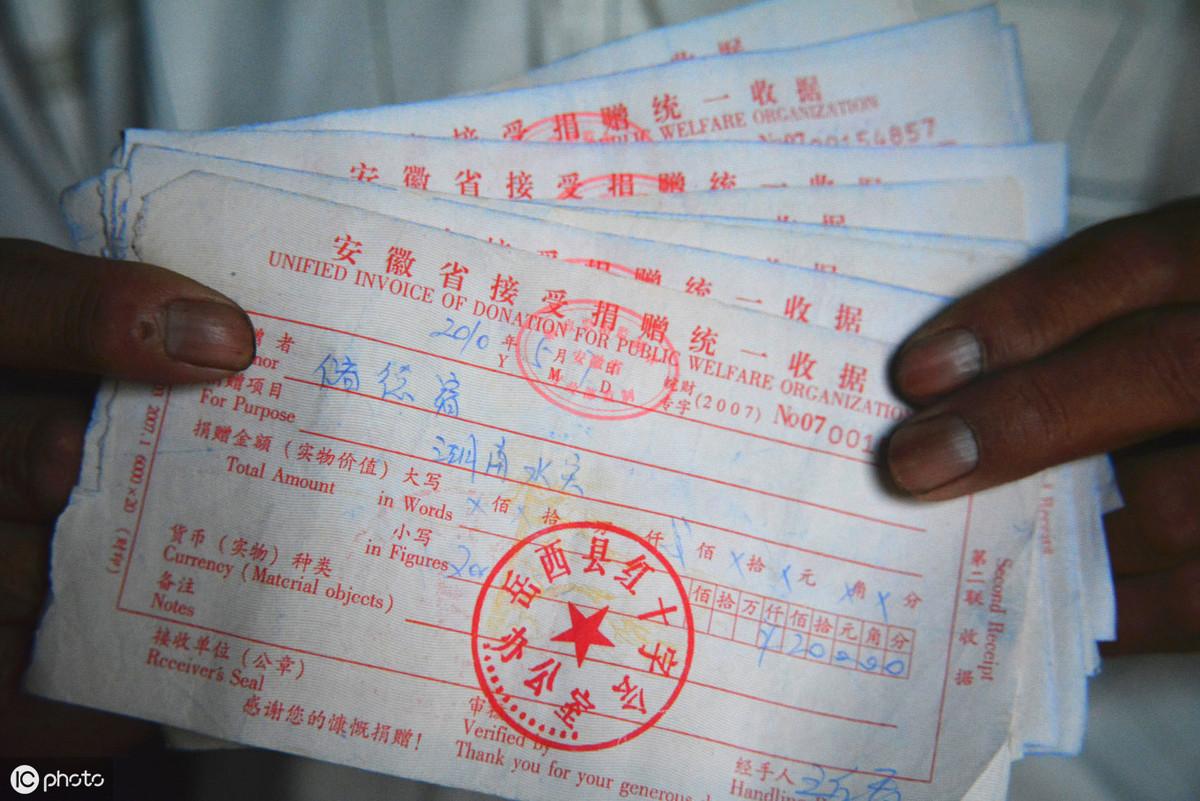 收据
受捐赠统一收据
PUBLIC WELFARE ORGANIZATION
No07 00154857
安徽省接受捐赠统一收据
收据
安徽省接受捐赠统一收据
UNIFIED INVOICE OF DONATION FOR PUBLIC WELFARE ORGANIZATION
2010 年 5 月 日
Y M D
皖财
专字 (2007) No07 001
赠者
nor
捐赠项目
For Purpose
捐赠金额(实物价值)大写
Total Amount in Words
X 佰 拾 万 仟 佰 X 拾 X 元 X 角 X 分
小写
in Figures
佰 拾 万 仟 佰 拾 元 角 分
¥ 2 0 0 0 0
货币(实物)种类
Currency (Material objects)
备注
Notes
接收单位(公章)
Receiver's Seal
岳西县红十字会
办公室
审
Verified by
经手人
Handling
感谢您的慷慨捐赠!
Thank you for your generous
第二联 收据
Second Receipt
2007.1 6000×20